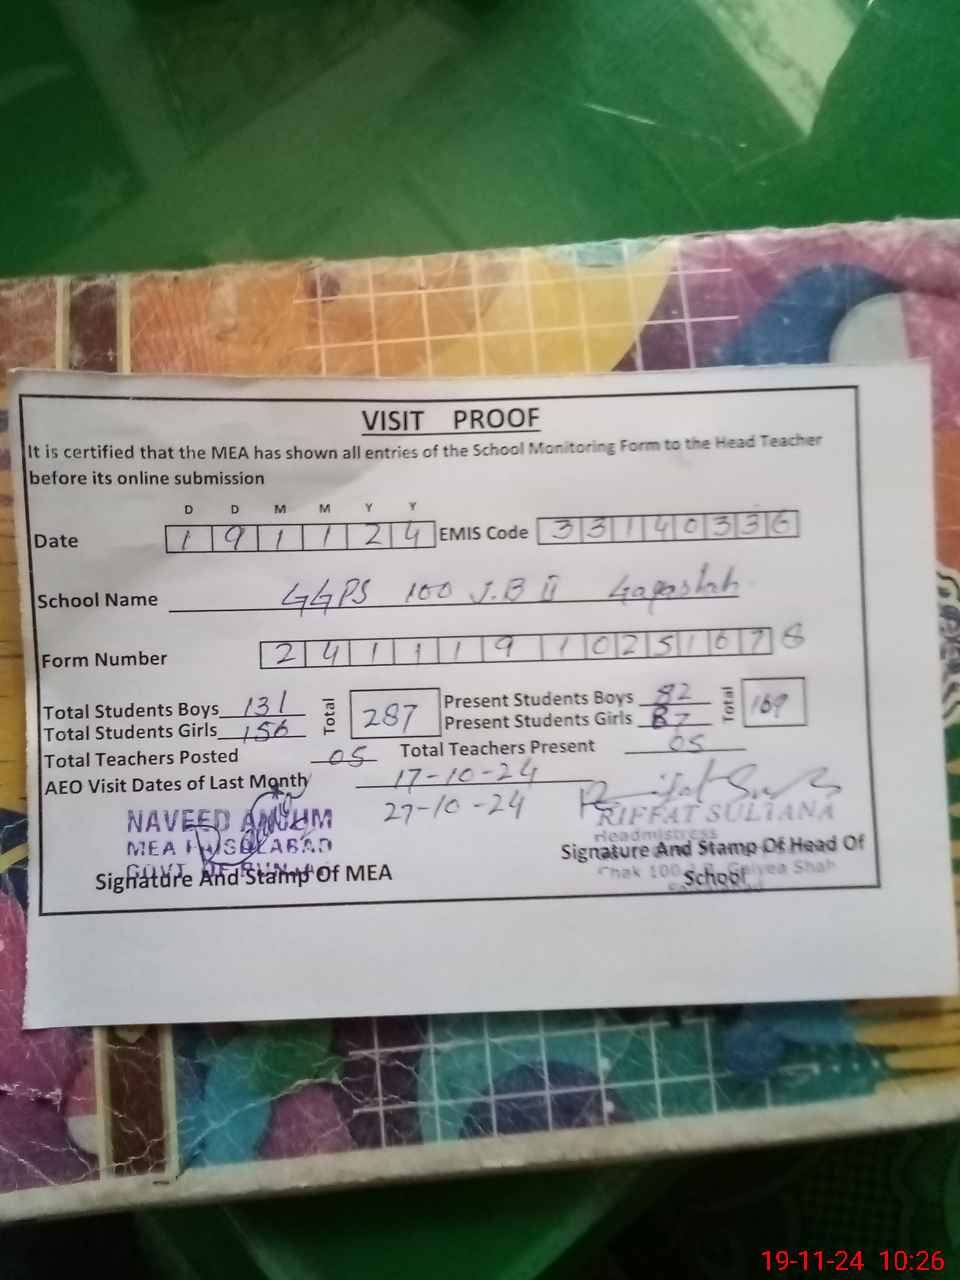 VISIT PROOF
It is certified that the MEA has shown all entries of the School Monitoring Form to the Head Teacher
before its online submission
D D M M Y Y
Date 1 9 1 1 2 4 EMIS Code 3 3 1 4 0 3 3 6
School Name GGPS 100 J.B II
Form Number 2 4 1 1 1 9 1 0 2 5 1 6 7 8
Total Students Boys 131 Total 287 Present Students Boys 82 Total 169
Total Students Girls 156 Present Students Girls 87
Total Teachers Posted 05 Total Teachers Present 05
AEO Visit Dates of Last Month 17-10-24
27-10-24
NAVEED ANJUM
MEA FAISALABAD
GOVT OF PUNJAB
Signature And Stamp Of MEA
RIFFAT SULTANA
Headmistress
Signature And Stamp Of Head Of
School
Chak 100 J.B. Shah
19-11-24 10:26